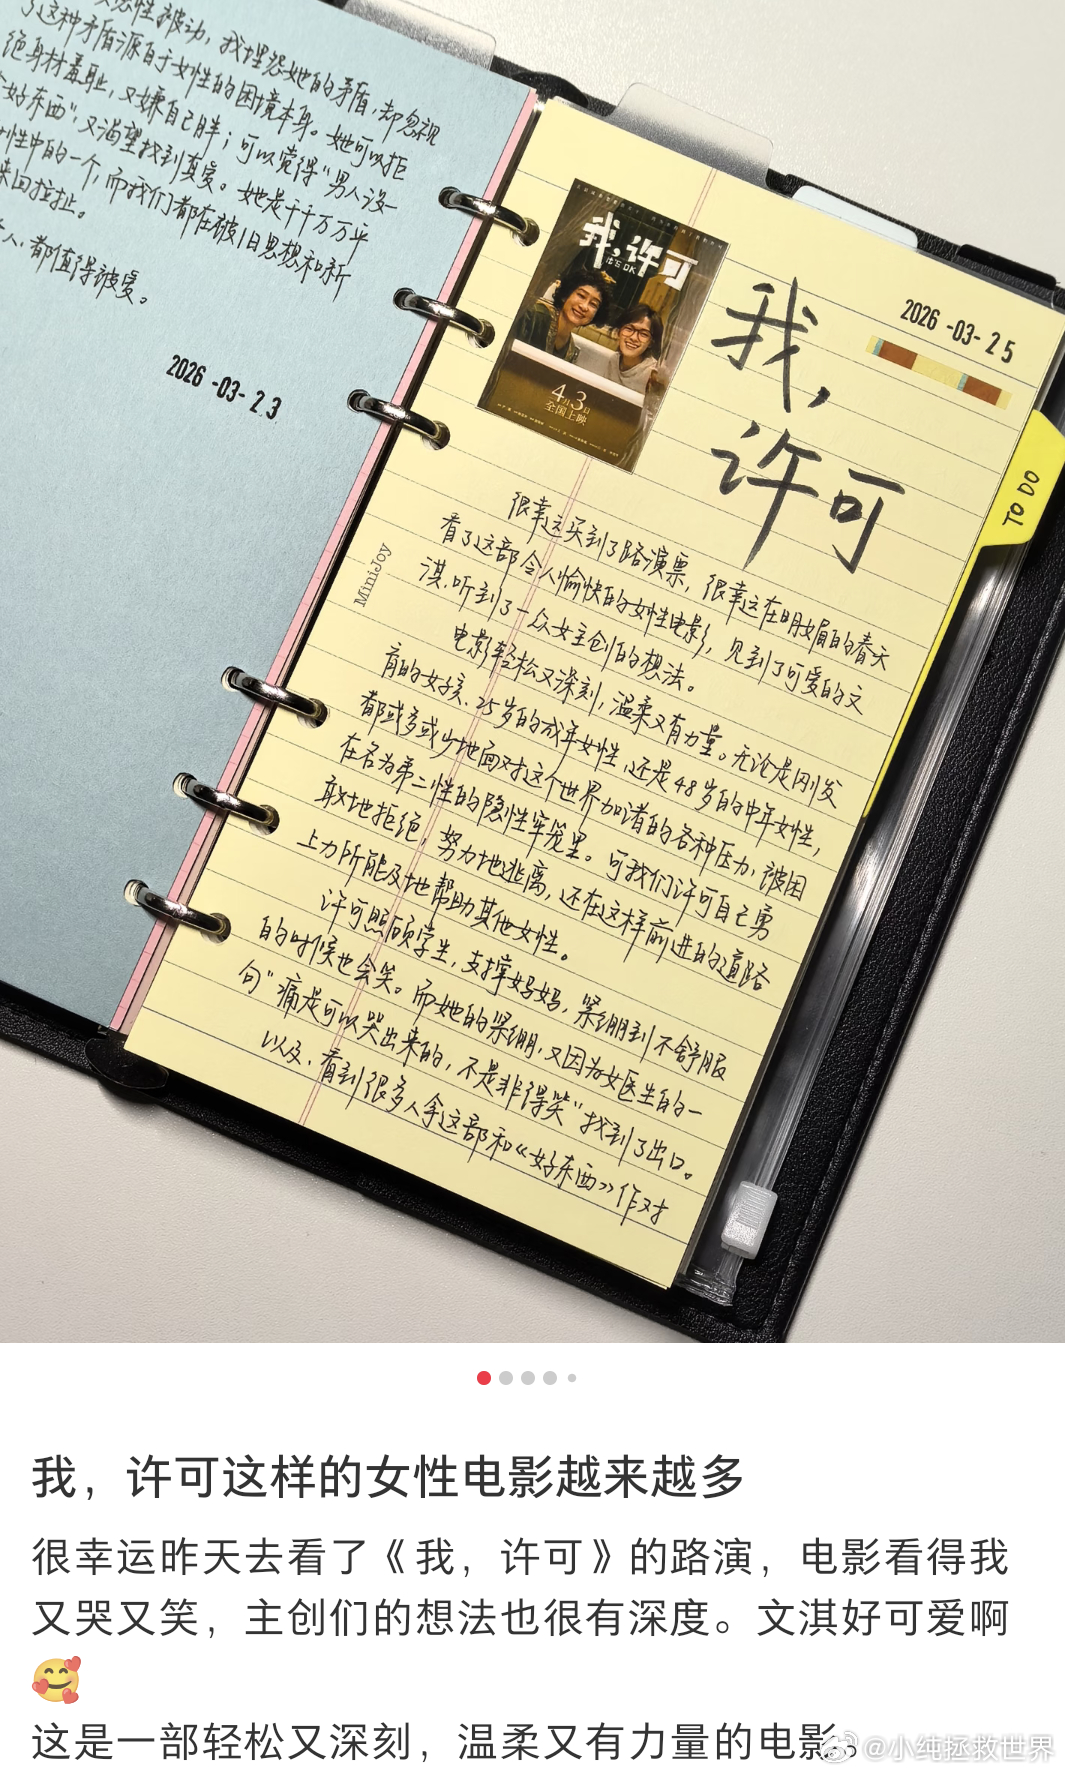 感性被动，我埋怨她的矛盾，却忽视
了这种矛盾源自于女性的困境本身。她可以拒
绝身材羞耻，又嫌自己胖；可以觉得“男人没
好东西”，又渴望找到真爱。她是千千万万平
性中的一个，而我们都在被旧思想和新
来回拉扯。
人，都值得被爱。
2026-03-23
我，许可
IT'S OK
4月3日
全国上映
我，
许可
2026-03-25
TO DO
MiniJoy
很幸运买到了路演票，很幸运在明媚的春天
看了这部令人愉快的女性电影，见到了可爱的文
淇，听到了一众女主创的想法。
电影轻松又深刻，温柔又有力量。无论是刚发
育的女孩、25岁的成年女性，还是48岁的中年女性，
都或多或少地面对这个世界加诸的各种压力，被困
在名为第二性的隐性牢笼里。可我们许可自己勇
敢地拒绝，努力地逃离，还在这样前进的道路
上力所能及地帮助其他女性。
许可照顾学生，支撑妈妈，紧绷到不舒服
的时候也会笑。而她的紧绷，又因为女医生的一
句“痛是可以哭出来的，不是非得笑”找到了出口。
以及，看到很多人拿这部和《好东西》作对
我，许可这样的女性电影越来越多
很幸运昨天去看了《我，许可》的路演，电影看得我
又哭又笑，主创们的想法也很有深度。文淇好可爱啊
🥰
这是一部轻松又深刻，温柔又有力量的电影。
@小纯拯救世界